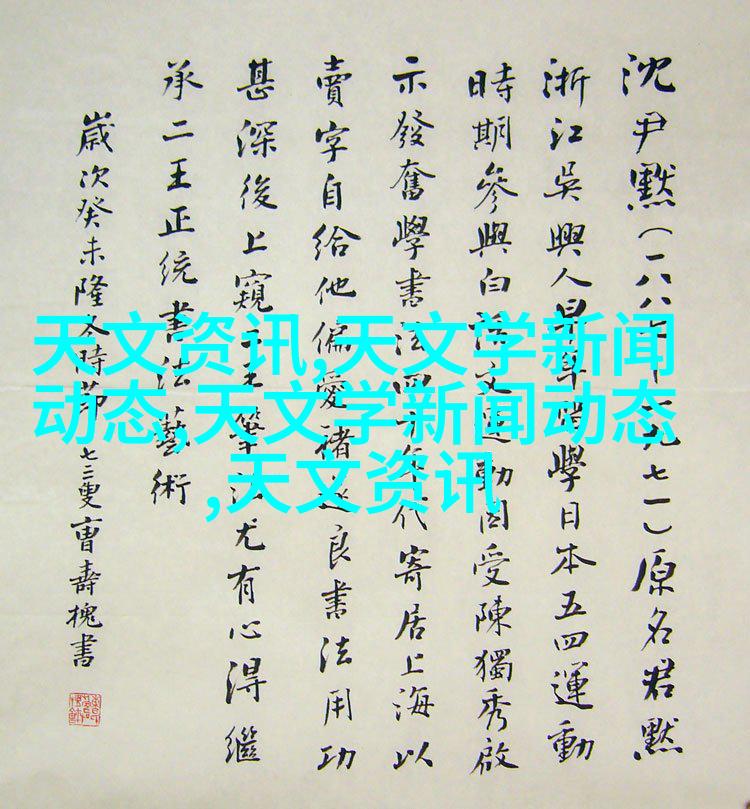 沈尹默（一八八七—一九七一）原名君默
浙江吳興人早年留學日本五四運動
時期參與白話文運動因受陳獨秀啟
示發奮學書法四十年代寄居上海以
賣字自給他偏愛褚遂良書法用功
甚深後上窺二王筆法尤有心得繼
承二王正统書法藝術
歲次癸未隆冬時節七三叟曹壽槐書
天文资讯,天文学新闻
动态,天文学新闻动态
,天文资讯